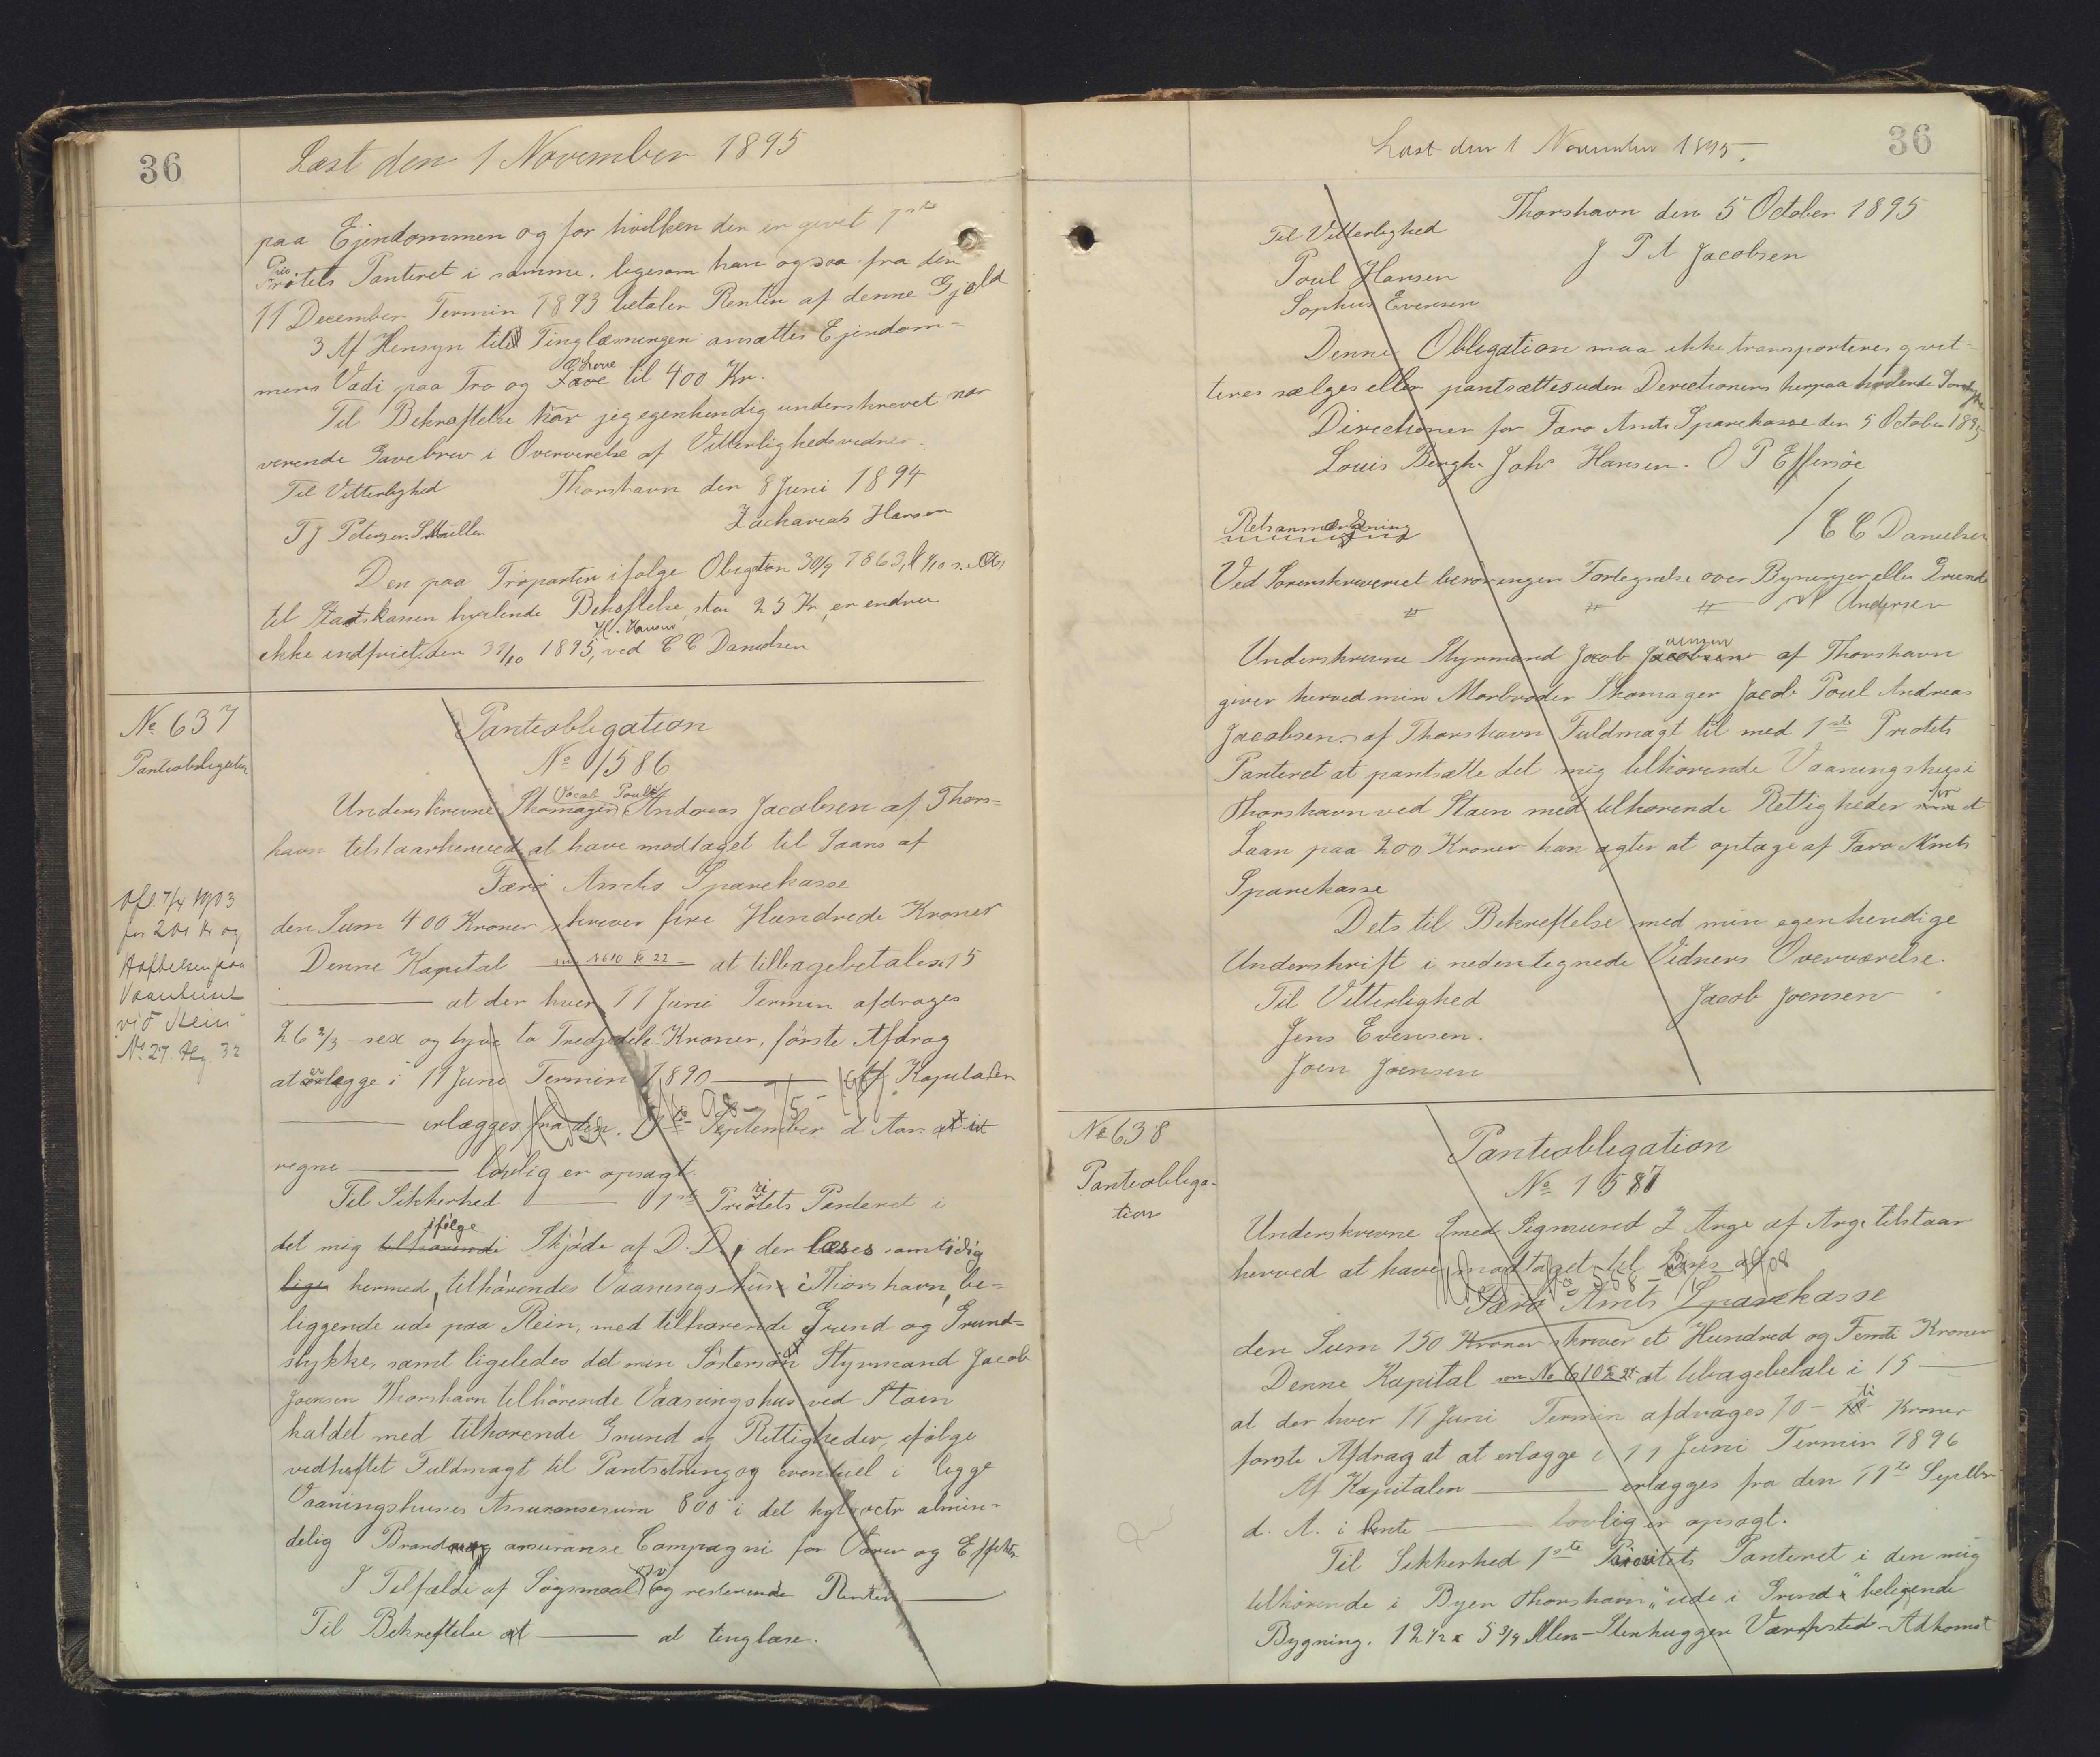 36
Læst den 1 November 1895
paa Ejendommen og for hvilken der er givet 1ste
Prio.
Protets Panteret i samme. ligesom han ogsaa fra den
11 December Termin 1893 betaler Renten af denne Gjæld
3 Af Hensyn til Tinglæsningen ansættes Ejendom-
mens Vædi paa Tro og Love til 400 Kr.
Til Bekræftelse har jeg egenhendig underskrevet nær
værende Gavebrev i Overværelse af Vitterlighedsvidner.
Til Vitterlighed Thorshavn den 8 Juni 1894
T J Petersen. S Müller Zacharias Hansen
Den paa Troparten ifølge Obligation 30/9 1863,
til Statskassen hvilende Behæftelse, stor 25 Kr, er endnu
ikke indfriet den 31/10 1895, ved E C Danielsen
No 637
Panteobligation
Panteobligation
No 1586
Jacob Poul
Underskrevne Skomager Andreas Jacobsen af Thors-
havn tilstaar herved at have modtaget til Laans af
Færø Amts Sparekasse
den Sum 400 Kroner skriver fire Hundrede Kroner
Denne Kapital som No 610 Fo 22 at tilbagebetales i 15
at der hver 11 Juni Termin afdrages
26 2/3 - sex og tyve to Tredjedele Kroner, første Afdrag
at erlægge i 11 Juni Termin 1890 Af Kapitalen
erlægges fra den 11te September d Aar at
regne lovlig er opsagt.
Til Sikkerhed 1ste Priotets Panteret i
ifølge
det mig tilhørende Skjøde af D.D., der læses samtidig
lige hermed, tilhørendes Vaaningshus i Thorshavn, be-
liggende ude paa Rein, med tilhørende Grund og Grund-
stykke, samt ligeledes det min Søstersøn Styrmand Jacob
Joensen Thorshavn tilhørende Vaaningshus ved Stain
kaldet med tilhørende Grund og Rettigheder, ifølge
vedhæftet Fuldmagt til Pantsetning og eventuel i begge
Vaaningshuses Assuransesum 800 i det kgl octr almin-
delig Brand assuranse Compagni for Varer og Effekter
I Tilfælde af Søgsmaal og resterende Renter
Til Bekreftelse at at tinglæse.
Afl. 7/4 1903
for 200 Kr og
Hæftelsen paa
Vaanhuset
við Stein"
No 27. Pg. 32
36
Læst den 1 November 1895.
Thorshavn den 5 October 1895
Til Vitterlighed
J P A Jacobsen
Poul Hansen
Sophus Evensen
Denne Obligation maa ikke transporteres qvit-
teres sælges eller pantsættes uden Derectionens herpaa
Directionen for Færø Amts Sparekasse den 5 October 1895
Louis Bergh. Johs Hansen. O P Effersøe
/ E C Danielsen
Retsanmærkning
Ved Sorenskriveriet beror ingen Fortegnelse over Byens Jer eller Grunde
" " " N Andersen
Underskrevne Styrmand Jacob Jacobsen af Thorshavn
giver herved min Morbroder Skomager Jacob Poul Andreas
Jacobsen af Thorshavn Fuldmagt til med 1ste Priotets
Panteret at pantsætte det mig tilhørende Vaaningshus i
Thorshavn ved Stain med tilhørende Rettigheder for et
Laan paa 200 Kroner han agter at optage af Færø Amts
Sparekasse
Dets til Bekreftelse med min egenhendige
Underskrift i nedentegnede Vidners Overværelse.
Til Vitterlighed Jacob Joensen
Jens Evensen.
Joen Joensen
No 638
Panteobliga-
tion
Panteobligation
No 1587
Underskrevne Smed Sigmund Z Arge af Arge tilstaar
herved at have modtaget til Laans af
Færø Amts Sparekasse
den Sum 150 Kroner skriver et Hundred og Femti Kroner
Denne Kapital som No 610 Fo 22 at tilbagebetale i 15
at der hver 11 Juni Termin afdrages 10 - ti Kroner
første Afdrag at at erlægge i 11 Juni Termin 1896
Af Kapitalen erlægges fra den 11te Septbr
d. A. i Rente lovlig er opsagt.
Til Sikkerhed 1ste Prioritets Panteret i den mig
tilhørende i Byen Thorshavn, "ude i Grund" beligende
Bygning. 12 1/2 x 5 3/4 Alen - Stenhugger Værksted - Adkomst